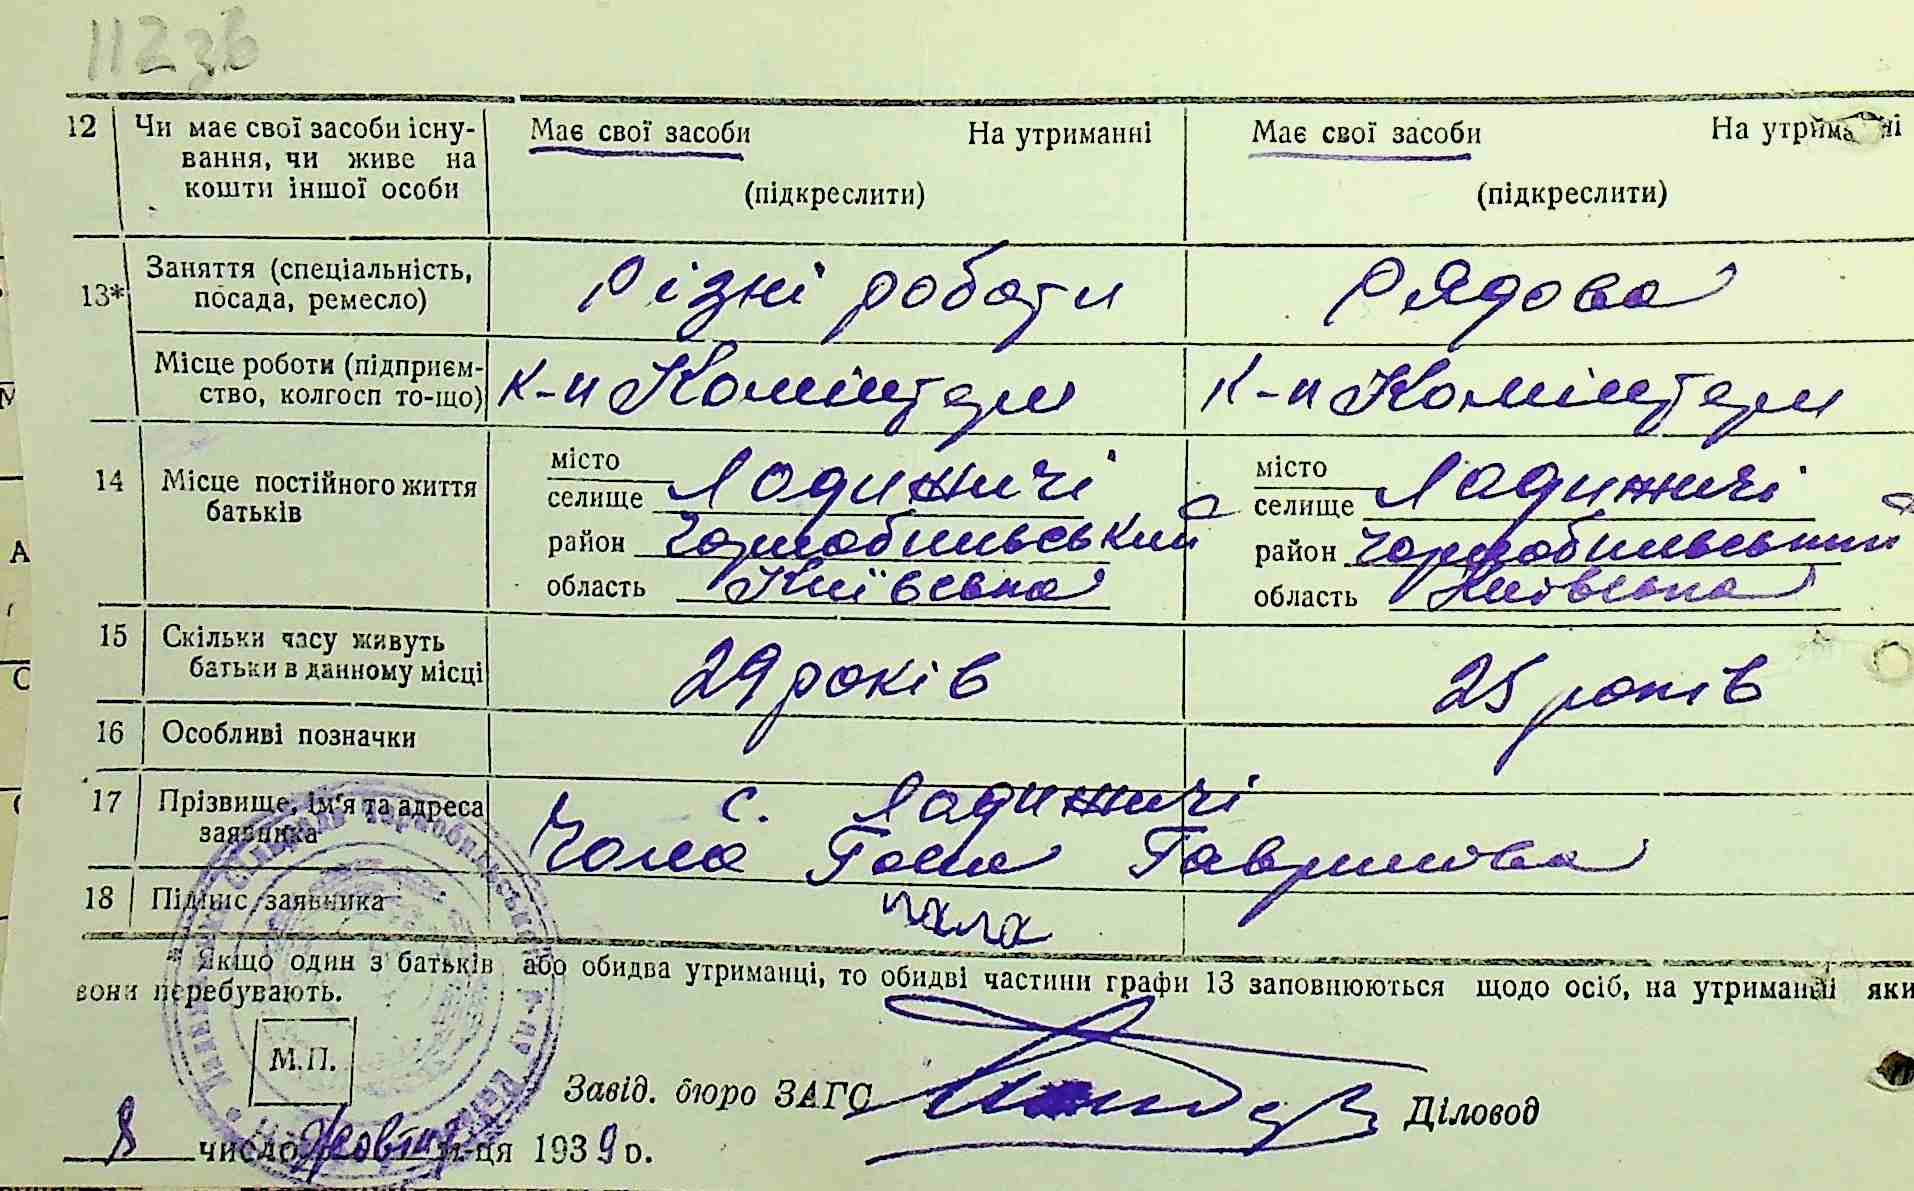 112зв
12 Чи має свої засоби існу- Має свої засоби На утриманні Має свої засоби На утриманні
вання, чи живе на
кошти іншої особи (підкреслити) (підкреслити)
13* Заняття (спеціальність, Різні роботи Рядова
посада, ремесло)
Місце роботи (підприєм- К-п Комінтерн К-п Комінтерн
ство, колгосп то-що)
14 Місце постійного життя місто Ладижичі місто Ладижичі
батьків селище селище
район Чорнобильський район Чорнобильський
область Київська область Київська
15 Скільки часу живуть 29 років 25 років
батьки в данному місці
16 Особливі позначки
17 Прізвище, ім'я та адреса с. Ладижичі
заявника Гавриловa
18 Підпис заявника
* Якщо один з батьків або обидва утриманці, то обидві частини графи 13 заповнюються щодо осіб, на утриманні яки
вони перебувають.
М.П.
Завід. бюро ЗАГС Діловод
8 число жовтня м-ця 1939 р.